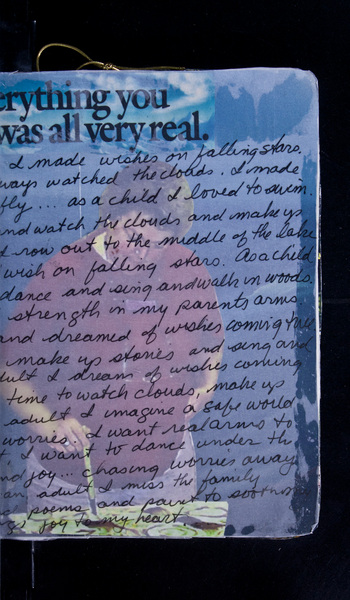 erything you
was all very real.
I made wishes on falling stars.
ways watched the clouds. I made
fly.... as a child I loved to swim.
nd watch the clouds and make up
I row out to the middle of the lake
wish on falling stars. As a child
dance and sing and walk in woods.
strength in my parents arms
and dreamed of wishes coming true
make up stories and sing and
ult I dream of wishes coming
time to watch clouds, make up
adult I imagine a safe world
worries. I want real arms to
t I want to dance under the
nd joy... chasing worries away
an adult I miss the family
poems and paint to
joy to my heart.